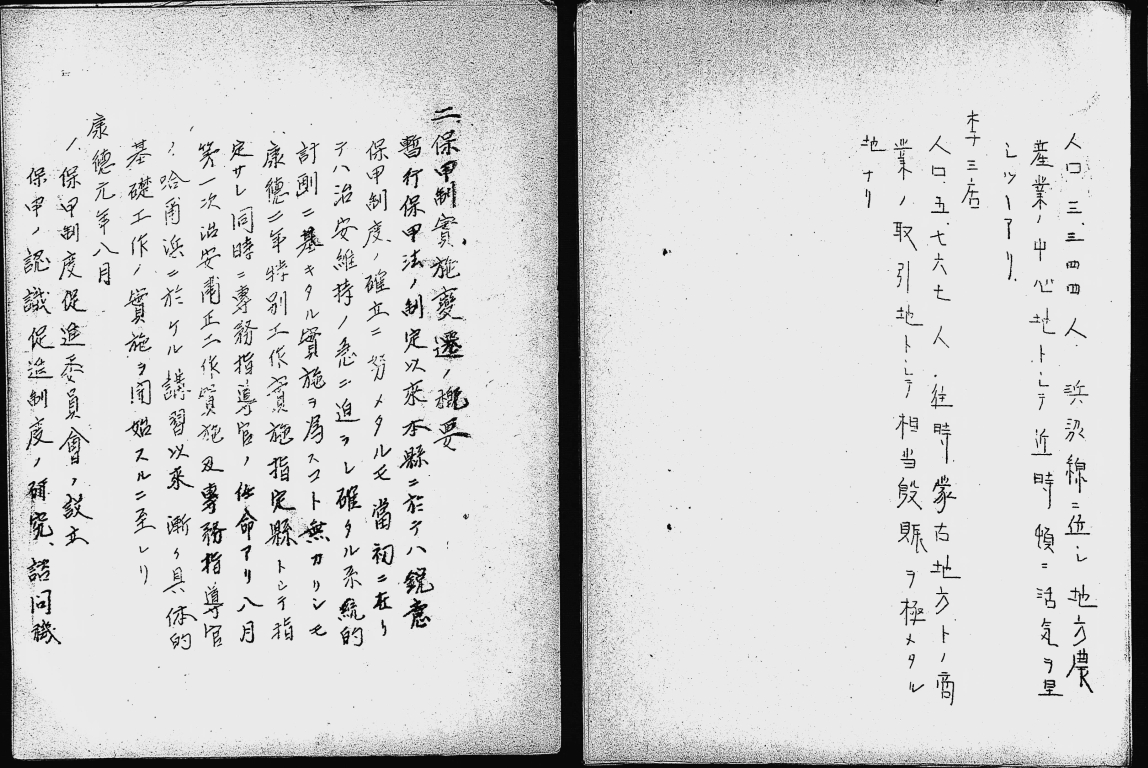 人口 三、三四四 人 浜洮線ニ近シ 地方農
産業ノ中心地トシテ 近時頓ニ活気ヲ呈
シツヽアリ
李三店
人口 五、七六七 人 往時蒙古地方トノ商
業ノ取引地トシテ相当殷賑ヲ極メタル
地ナリ
二、保甲制實施變遷ノ概要
暫行保甲法ノ制定以來本縣ニ於テハ鋭意
保甲制度ノ確立ニ努メタルモ當初ニ在リ
テハ治安維持ノ急ニ迫ラレ確タル系統的
計劃ニ基キタル實施ヲ為スコト無カリシモ
康德二年特別工作實施指定縣トシテ指
定サレ同時ニ專務指導官ノ任命アリ八月
第一次治安肅正工作實施及專務指導官
ノ哈爾浜ニ於ケル講習以來漸ク具体的
基礎工作ノ實施ヲ開始スルニ至レリ
康德元年八月
保甲制度促進委員會ノ設立
保甲ノ認識促進制度ノ研究、諮問機